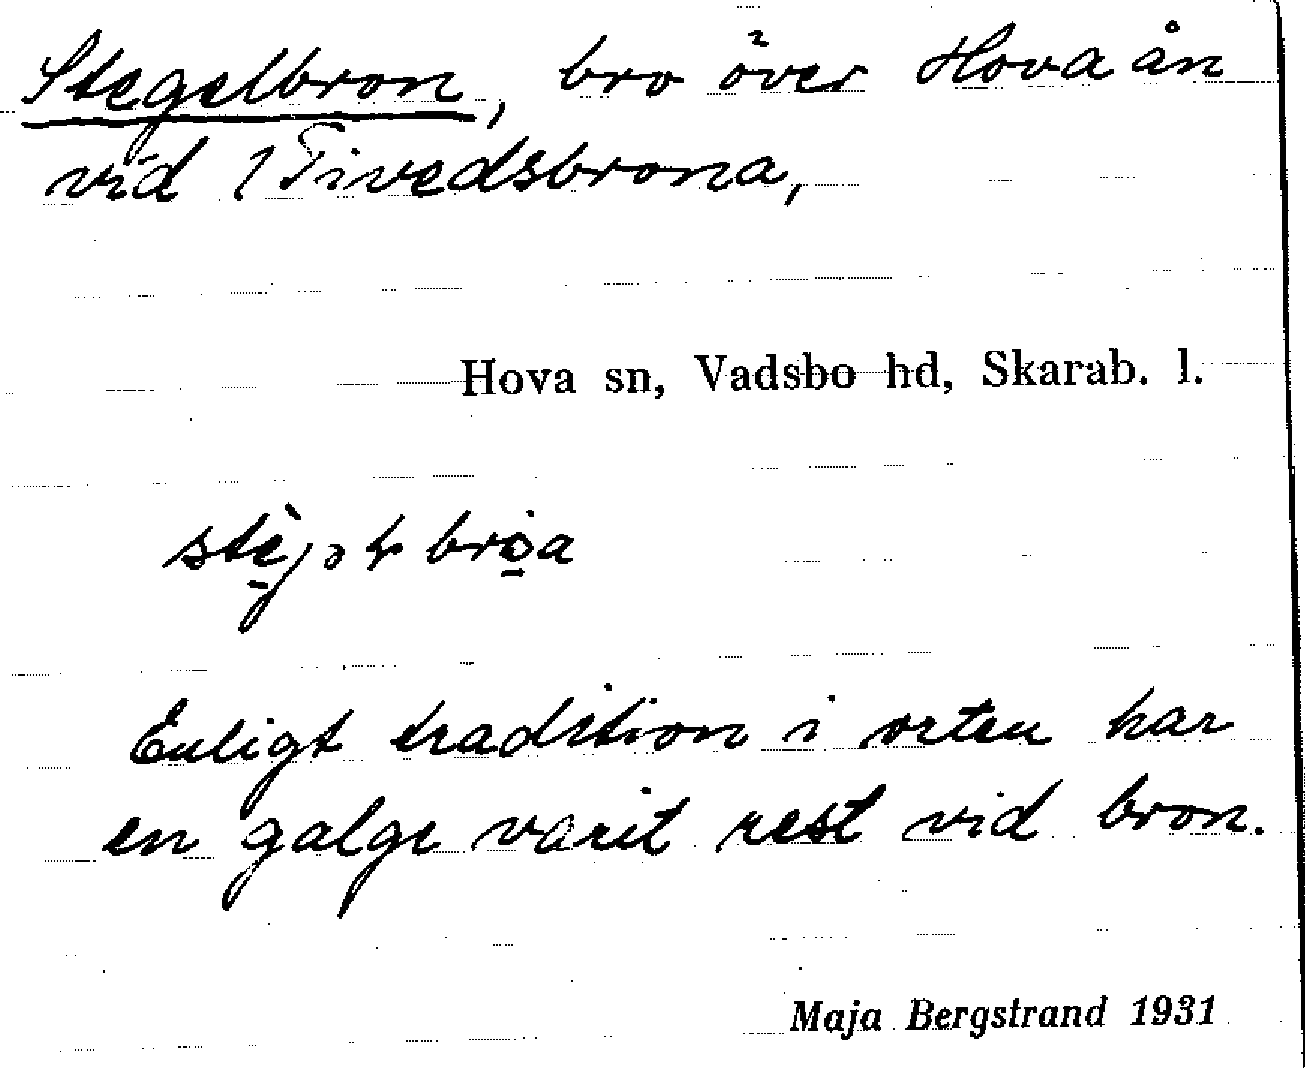 Stegelbron, bro över Hova ån
vid 1 Tivedsbrona,
Hova sn, Vadsbo hd, Skarab. l.
Enligt tradition i orten har
en galge varit rest vid bron.
Maja Bergstrand 1931